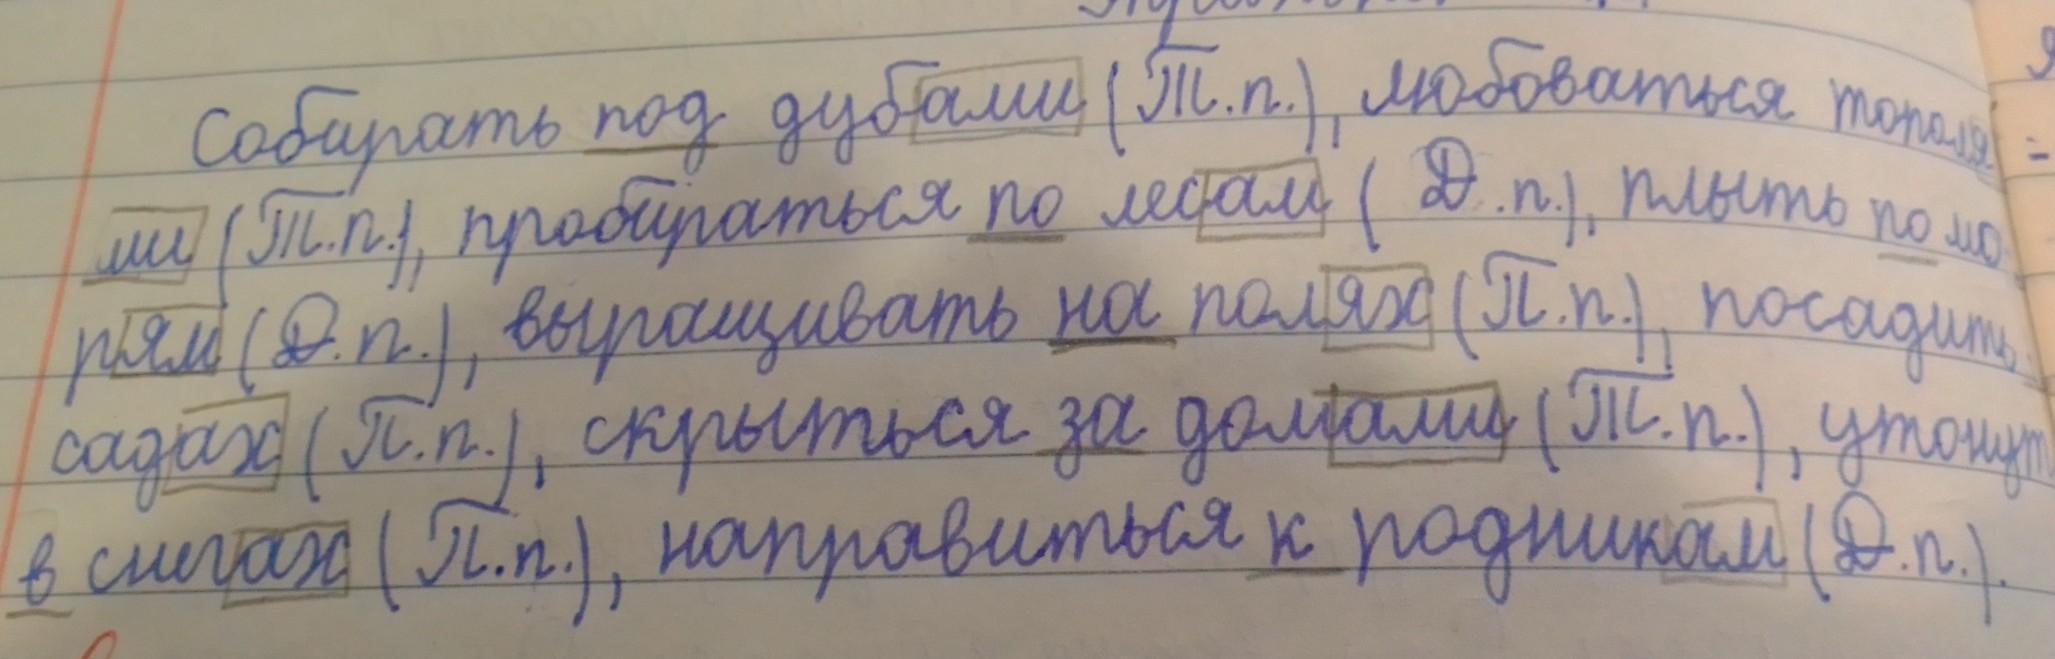 Собирать под дубами (Т.п.), любоваться тополя
ми (Т.п.), пробираться по лесам (Д.п.), плыть по мо
рям (Д.п.), выращивать на полях (П.п.), посадить
садах (П.п.), скрыться за домами (Т.п.), утонут
в снегах (П.п.), направиться к родникам (Д.п.).